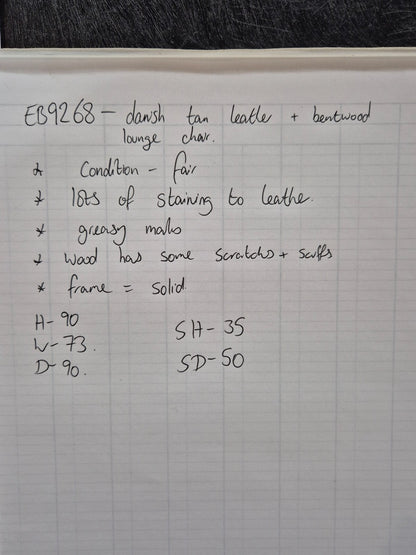 EB9268 - danish tan leather + bentwood
lounge chair.
* Condition - fair
* lots of staining to leather.
* greasy marks
* wood has some scratches + scuffs
* frame = solid.
H - 90
W - 73.
D - 90.
SH - 35
SD - 50